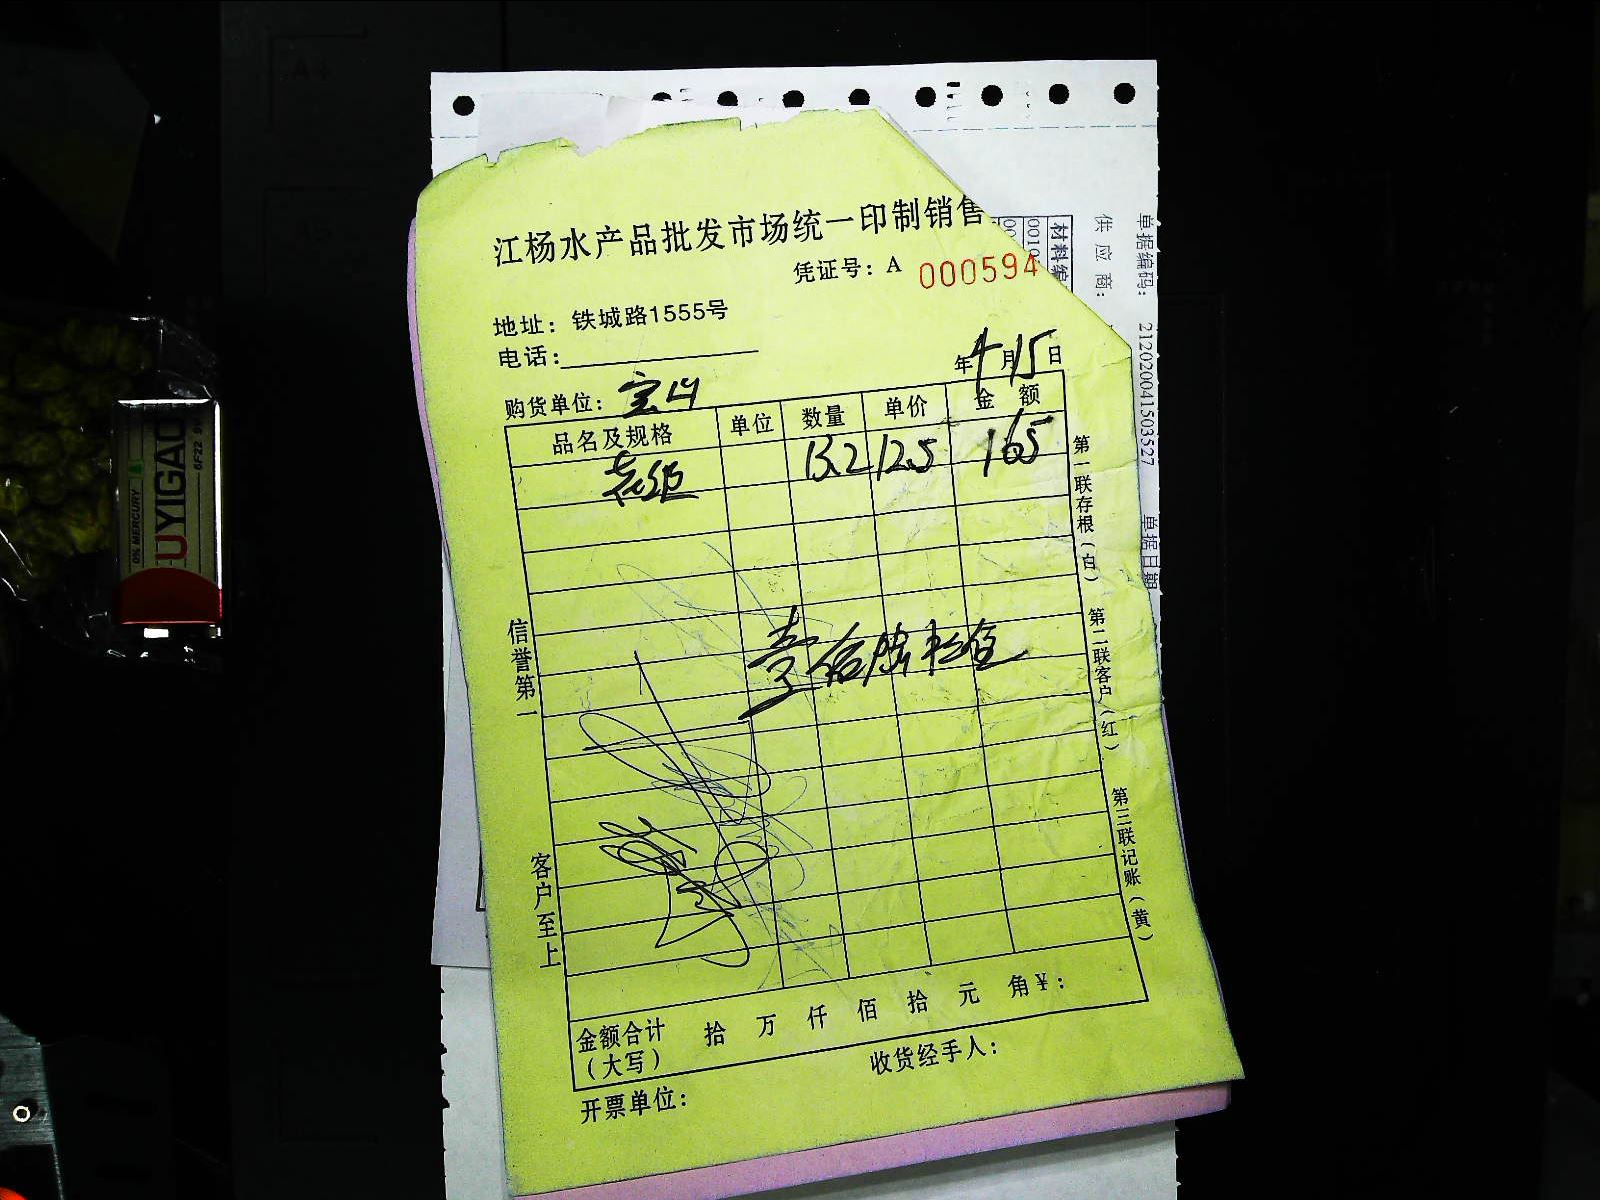 江杨水产品批发市场统一印制销售
凭证号：A 000594
地址：铁城路1555号
电话：
年4月15日
购货单位：宝山
品名及规格 单位 数量 单价 金额
13.2 12.5 165
壹佰陆拾伍
金额合计（大写） 拾 万 仟 佰 拾 元 角 ¥：
开票单位：
收货经手人：
信誉第一
客户至上
第一联存根（白）
第二联客户（红）
第三联记账（黄）
单据编码： 21202004151503527 单据日期
供应商：
材料编
0010
00
UYIGAO
6F22 9V
0% MERCURY